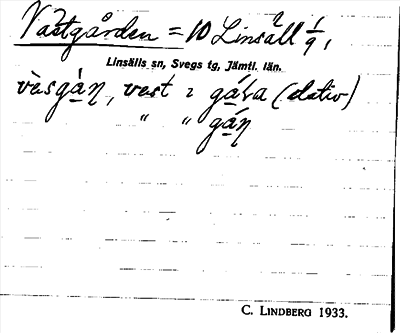 Västgården = 10 Linsäll 1/9,
Linsälls sn, Svegs tg, Jämtl. län.
vàsgá̱ꞑ, vest i gá̱ɽa (dativ)
" " gá̱ꞑ
C. LINDBERG 1933.